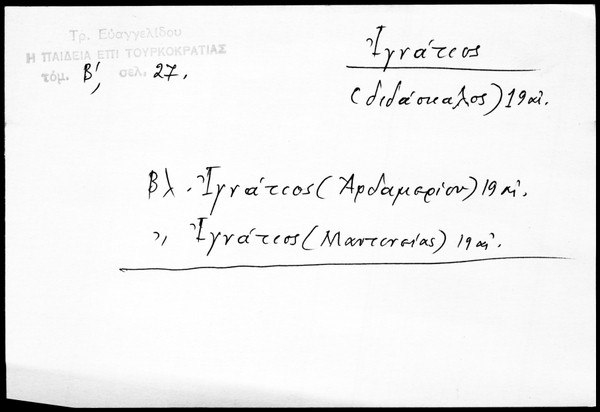 Τρ. Εὐαγγελίδου
Η ΠΑΙΔΕΙΑ ΕΠΙ ΤΟΥΡΚΟΚΡΑΤΙΑΣ
τόμ. Β', σελ. 27.
Ἰγνάτιος
(διδάσκαλος) 19 αἰ.
Βλ. Ἰγνάτιος (Ἀρδαμερίου) 19 αἰ.
,, Ἰγνάτιος (Μαντινείας) 19 αἰ.